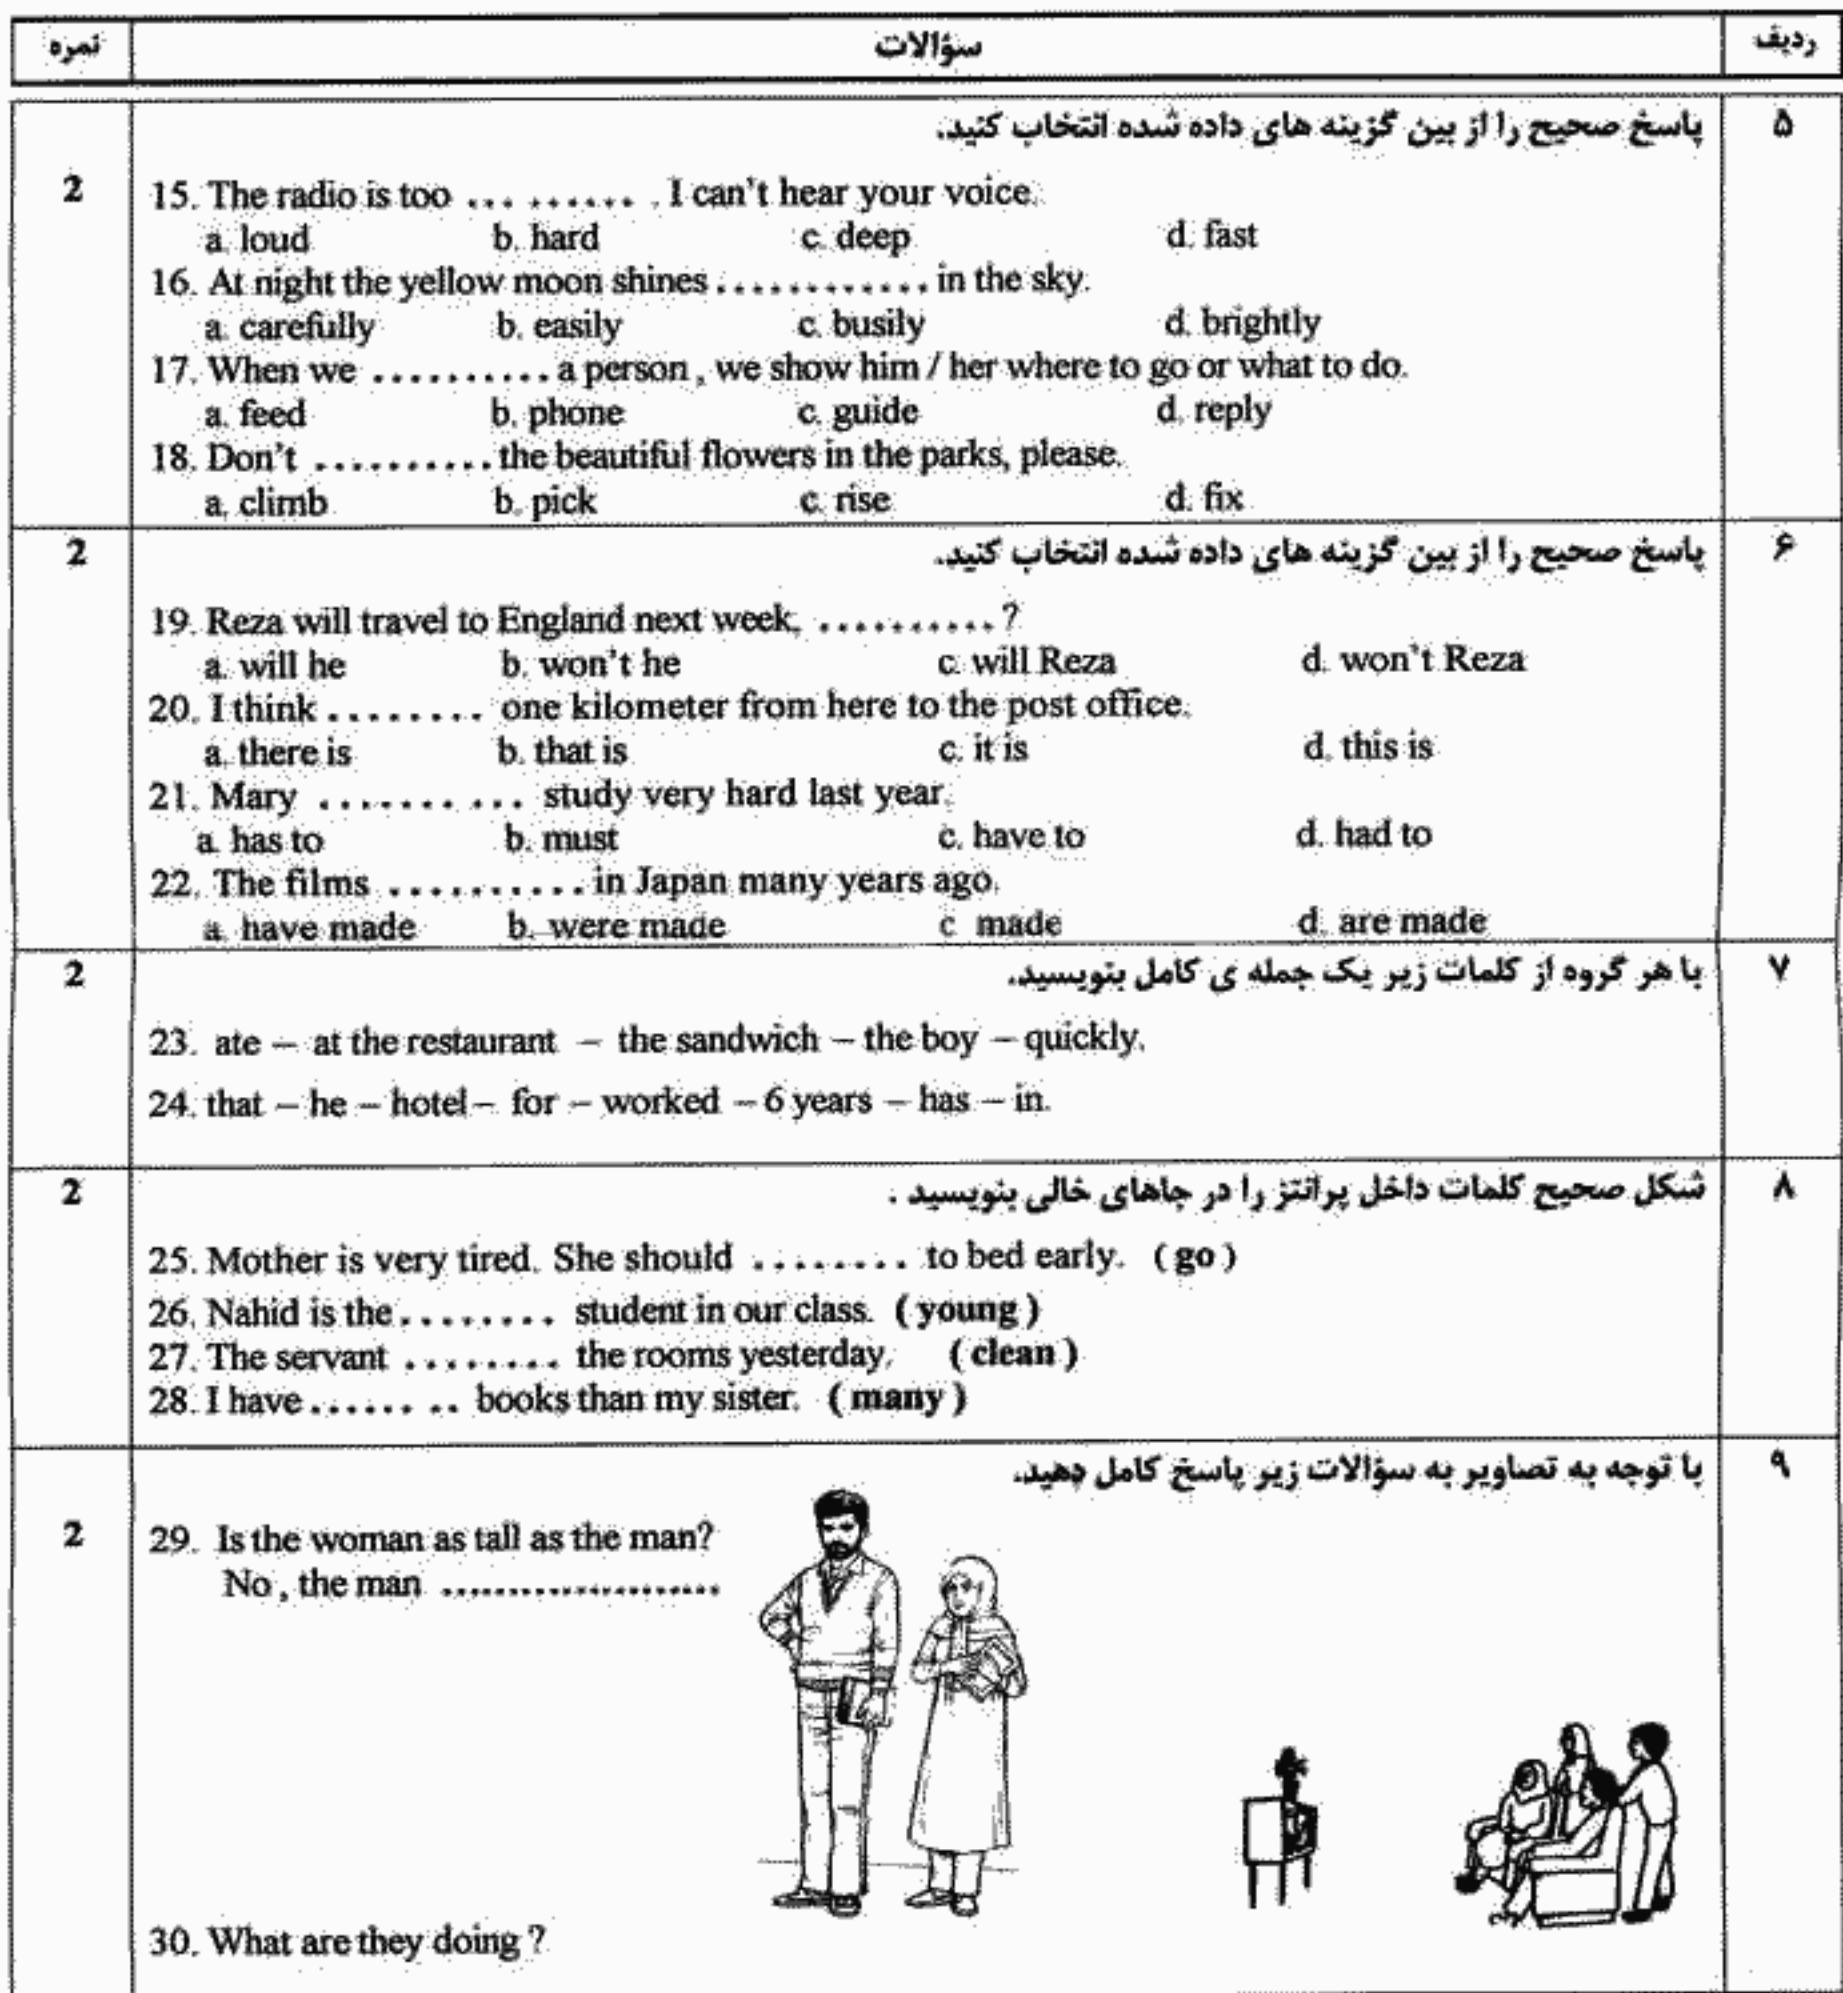 ردیف سؤالات نمره
۵ پاسخ صحیح را از بین گزینه های داده شده انتخاب کنید.
2 15. The radio is too ... ........ . I can't hear your voice.
a. loud b. hard c. deep d. fast
16. At night the yellow moon shines ............ in the sky.
a. carefully b. easily c. busily d. brightly
17. When we .......... a person , we show him / her where to go or what to do.
a. feed b. phone c. guide d. reply
18. Don't .......... the beautiful flowers in the parks, please.
a. climb b. pick c. rise d. fix
۶ پاسخ صحیح را از بین گزینه های داده شده انتخاب کنید. 2
19. Reza will travel to England next week, .......... ?
a. will he b. won't he c. will Reza d. won't Reza
20. I think ........ one kilometer from here to the post office.
a. there is b. that is c. it is d. this is
21. Mary ....... ... study very hard last year.
a. has to b. must c. have to d. had to
22. The films .......... in Japan many years ago.
a. have made b. were made c made d. are made
۷ با هر گروه از کلمات زیر یک جمله ی کامل بنویسید. 2
23. ate – at the restaurant – the sandwich – the boy – quickly.
24. that – he – hotel – for – worked – 6 years – has – in.
۸ شکل صحیح کلمات داخل پرانتز را در جاهای خالی بنویسید . 2
25. Mother is very tired. She should ........ to bed early. ( go )
26. Nahid is the ........ student in our class. ( young )
27. The servant ........ the rooms yesterday. ( clean )
28. I have ...... .. books than my sister. ( many )
۹ با توجه به تصاویر به سؤالات زیر پاسخ کامل دهید.
2 29. Is the woman as tall as the man?
No , the man .....................
30. What are they doing ?